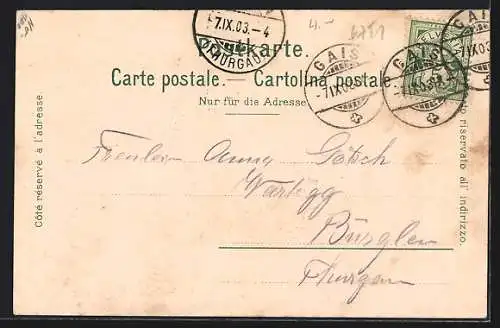 4.-
-7.IX.03.-4
(THURGAU)
Postkarte.
GAIS
-7.IX.03
GAIS
-7.IX.03.-
GAIS
Carte postale. — Cartolina postale
Nur für die Adresse
Côté réservé à l'adresse.
riservato all' indirizzo.
Fräulein Anna Götsch
Bürglen
Thurgau